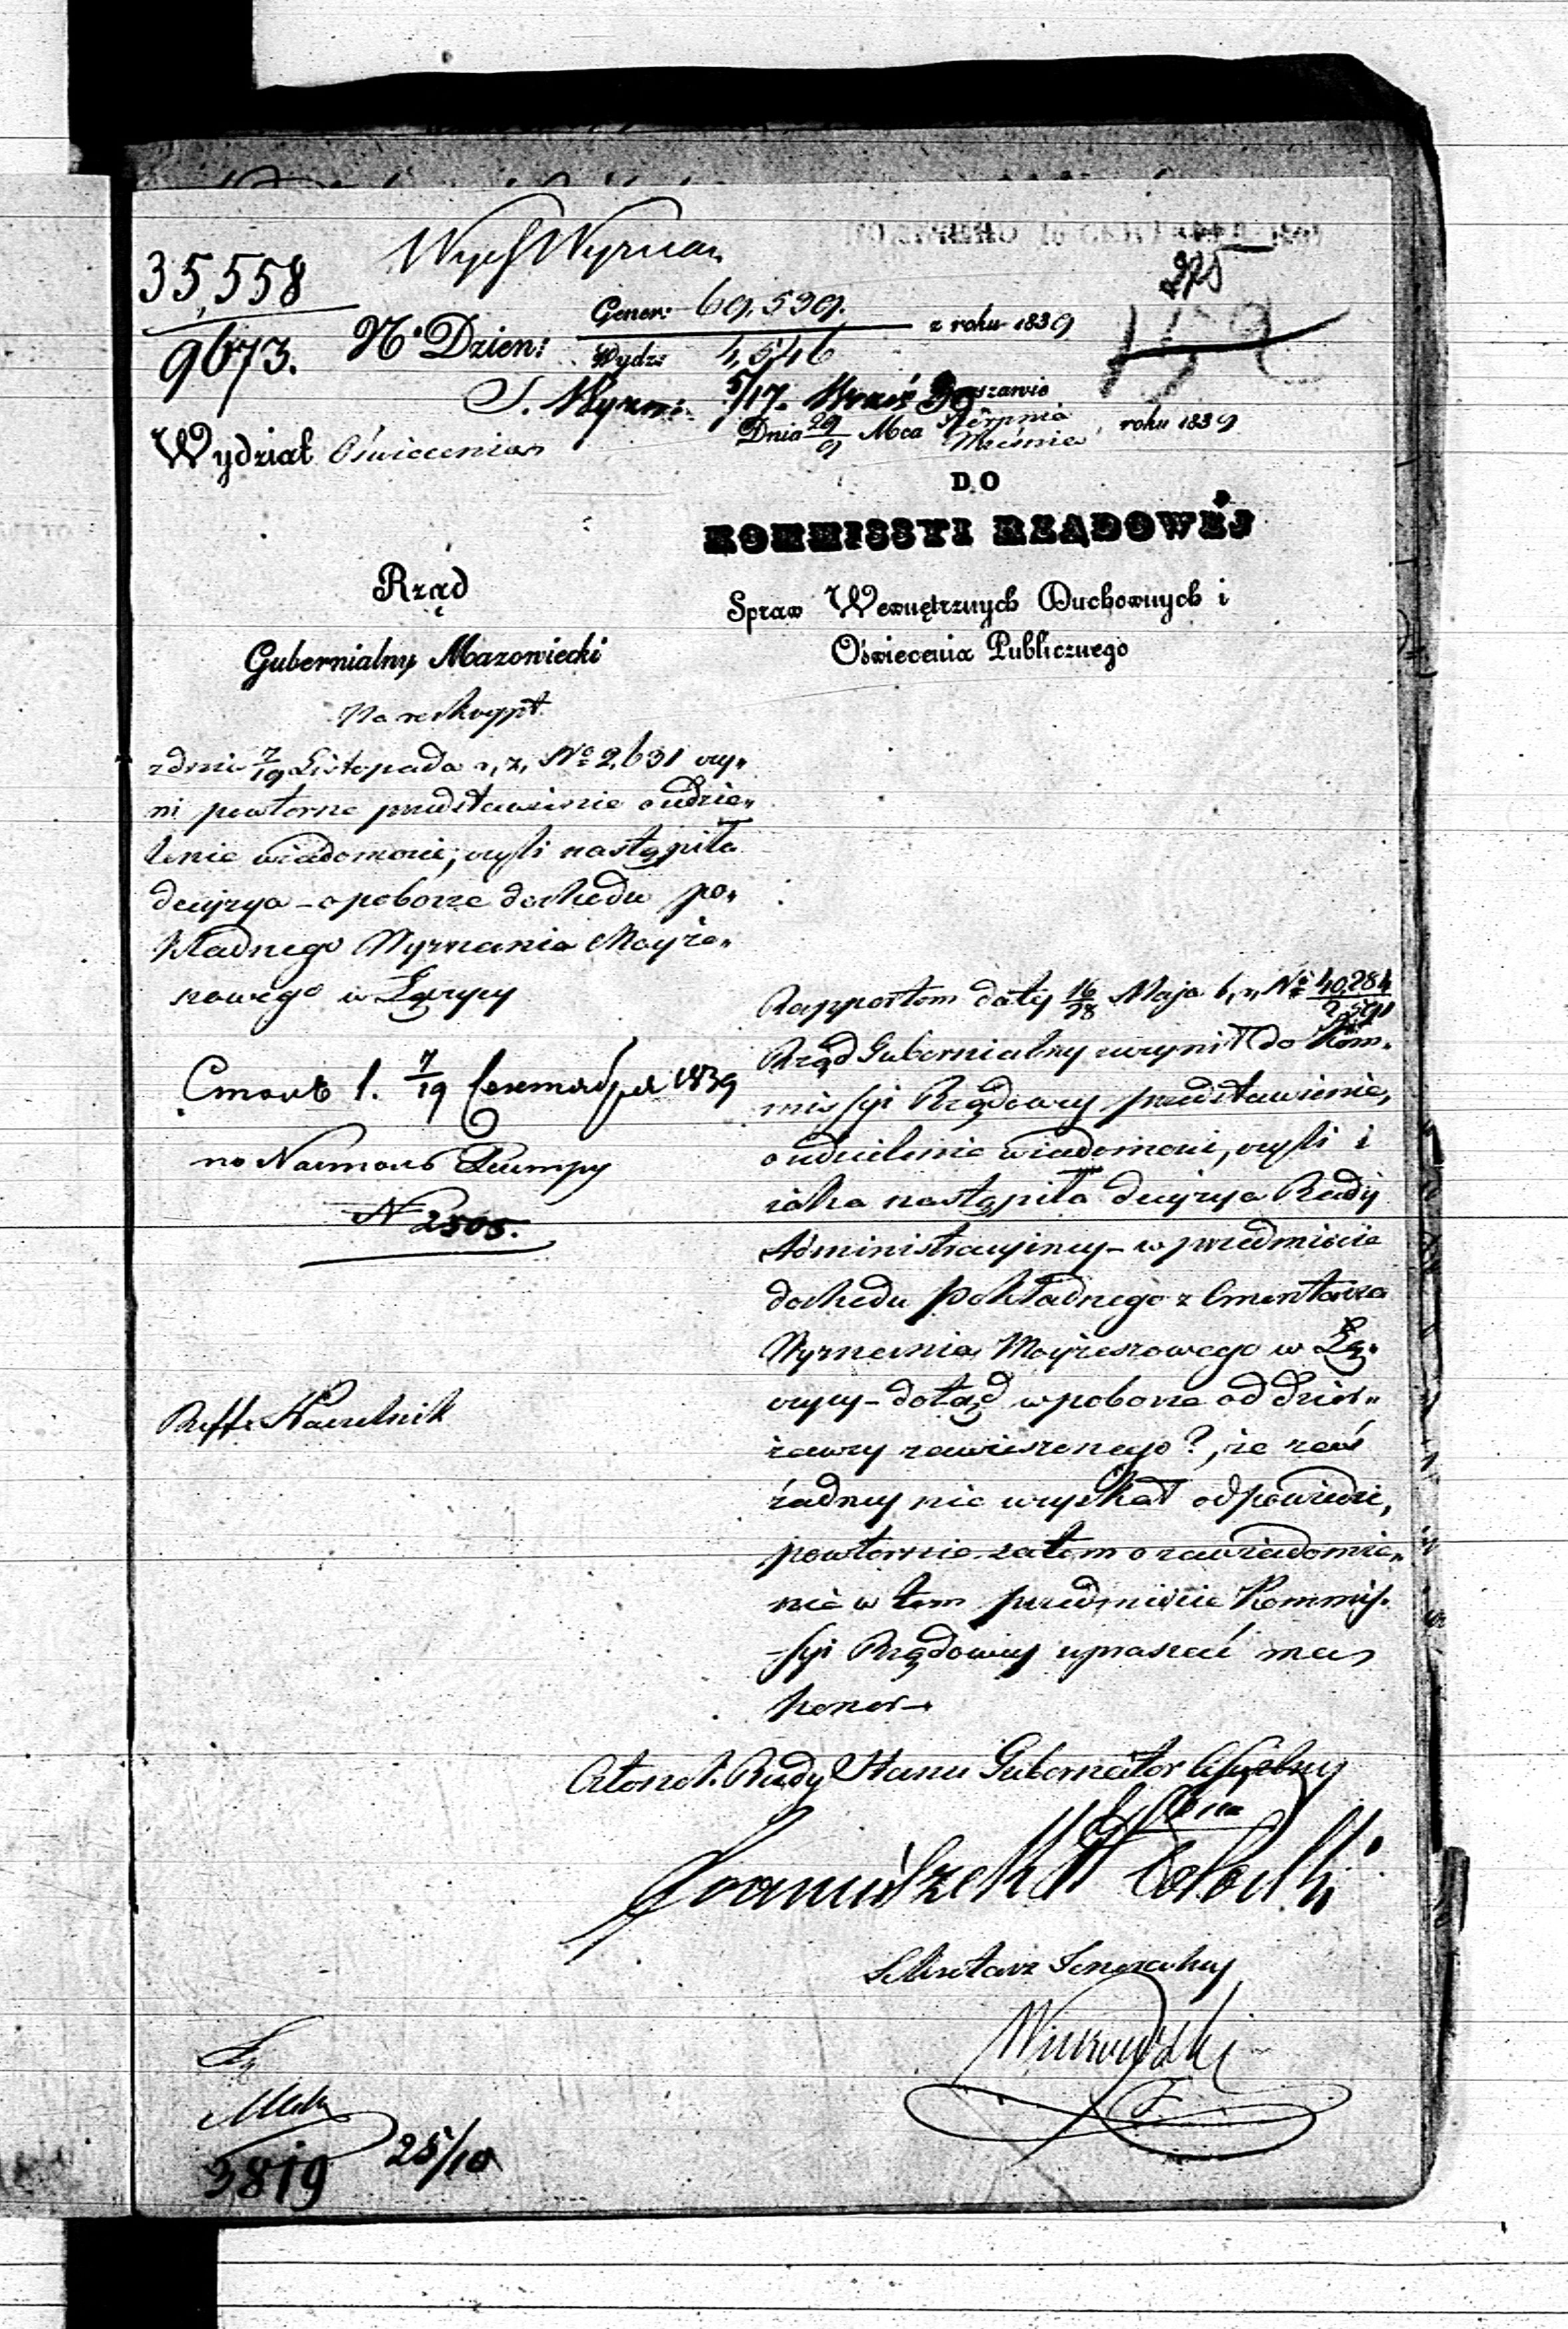 Wydz Wyznań
35,558
9673.
275
159
Nº Dzien: Gener: 69,539. z roku 1839
Wydz: 4,546
5/17.
w Warszawie
Dnia 29/9 Mca Sierpnia/Września roku 1839
Wydział Oświecenia
DO
KOMMISSYI RZĄDOWÉJ
Spraw Wewnętrznych Duchownych i
Oświecenia Publicznego
Rząd
Gubernialny Mazowiecki
Na reskrypt
z dnia 7/19 Listopada r, z, Nº 2,631 czy„
ni powtorne przedstawienie o udzie„
lenie wiadomości, czyli nastąpiła
decyzya – o poborze dochodu po„
kładnego Wyznania Mojże„
szowego w Łęczycy
7/19 1839
N 2505.
Reff. Naczelnik
Rapportem daty 16/28 Maja b, r, Nº 40,284/2,591
Rząd Gubernialny uczynił do Kom„
missyi Rządowey przedstawienie,
o udzielenie wiadomości, czyli i
iaka nastąpiła decyzya Rady
Administracyiney – w przedmiocie
dochodu pokładnego z Cmentarza
Wyznania Mojżeszowego w Łę„
czycy – dotąd w poborze od dzier„
żawcy zawieszonego?, że zaś
żadney nie uzyskał odpowiedzi,
powtornie zatem o zawiadomie„
nie w tem przedmiocie Kommis„
syi Rządowey upraszać ma
honor –
Członek Rady Stanu Gubernator Cywilny
Sekretarz Jeneralny
3819 25/10